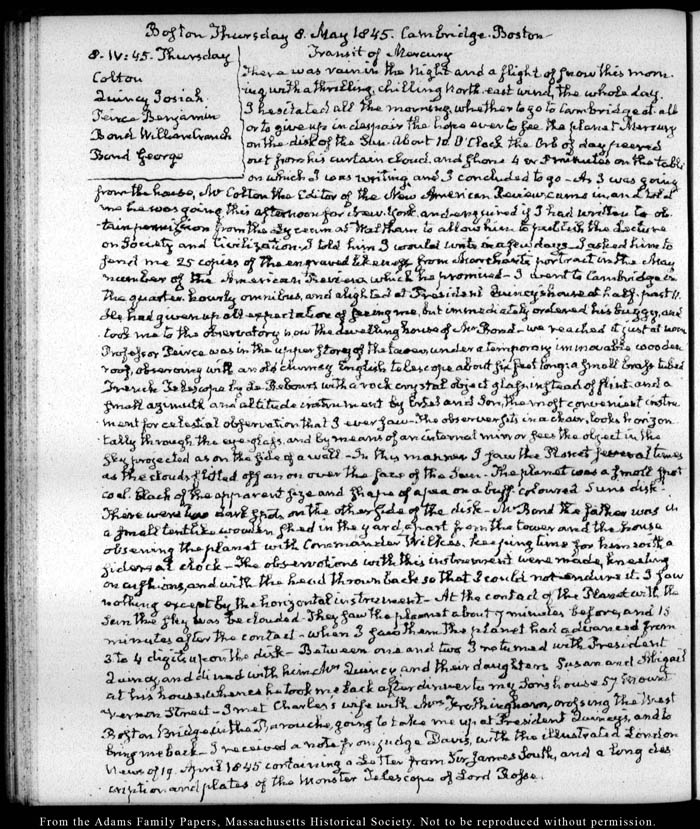 Boston Thursday 8. May 1845. Cambridge. Boston
8. IV: 45. Thursday
Transit of Mercury
Colton
Quincy Josiah
Peirce Benjamin
Bond William Cranch
Bond George
There was rain in the night and a flight of snow this morn
ing with a thrilling, chilling north east wind, the whole day.
I hesitated all the morning, whether to go to Cambridge at all
or to give up in despair the hope ever to see the planet Mercury
on the disk of the Sun. About 10 O'Clock the Orb of day peered
out from his curtain cloud, and shone 4 or 5 minutes on the table
on which I was writing, and I concluded to go - As I was going
from the house, Mr Colton the Editor of the New American Review came in, and told
me he was going this afternoon for New York and enquired if I had written to ob
tain permission from the Lyceum at Waltham to allow him to publish the Lecture
on Society and Civilization. I told him I would write in a few days - I asked him to
send me 25 copies of the engraved likeness from Marchant's portrait in the May
number of the American Review which he promised - I went to Cambridge in
the quarter-hourly omnibus, and alighted at President Quincy's house at half past 11.
He had given up all expectation of seeing me, but immediately ordered his buggy, and
took me to the observatory now the dwelling house of Mr Bond - we reached it just at noon
Professor Peirce was in the upper story of the tower, under a temporary immovable wooden
roof, observing with an old clumsy English telescope about six feet long: a small brass tubed
French Telescope by Le Rebours with a rock crystal object glass, instead of flint and a
small azimuth and altitude instrument by Ertel and Son, the most convenient instru
ment for celestial observation that I ever saw - The observer sits in a chair, looks horizon
tally through the eye-glass, and by means of an internal mirror sees the object in the
sky projected as on the side of a wall - In this manner I saw the Planet several times
as the clouds flitted off an on over the face of the Sun. The planet was a small spot
coal black of the apparent size and shape of a pea on a buff coloured Suns disk.
There were two dark spots on the other side of the disk - Mr Bond the father was in
a small tentlike wooden shed in the yard, apart from the tower and the house
observing the planet with Commander Wilkes, keeping time for him with a
sidereal clock - The observations with this instrument were made, kneeling
on cushions, and with the head thrown back so that I could not endure it. I saw
nothing except by the horizontal instrument - At the contact of the Planet with the
Sun the sky was beclouded. They saw the planet about 7 minutes before, and 15
minutes after the contact - when I saw them the planet had advanced from
3 to 4 digits upon the disk - Between one and two I returned with President
Quincy, and dined with him, Mrs Quincy, and their daughters Susan and Abigail
at his house: whence he took me back after dinner to my Sons house 57 Mount
Vernon Street - I met Charles's wife with Mrs Frothingham, crossing the West
Boston Bridge in the Barouche, going to take me up at President Quincys, and to
bring me back - I received a note from Judge Davis, with the illustrated London
News of 19. April 1845 containing a Letter from Sir James South, and a long des
cription and plates of the Monster Telescope of Lord Rosse.
From the Adams Family Papers, Massachusetts Historical Society. Not to be reproduced without permission.